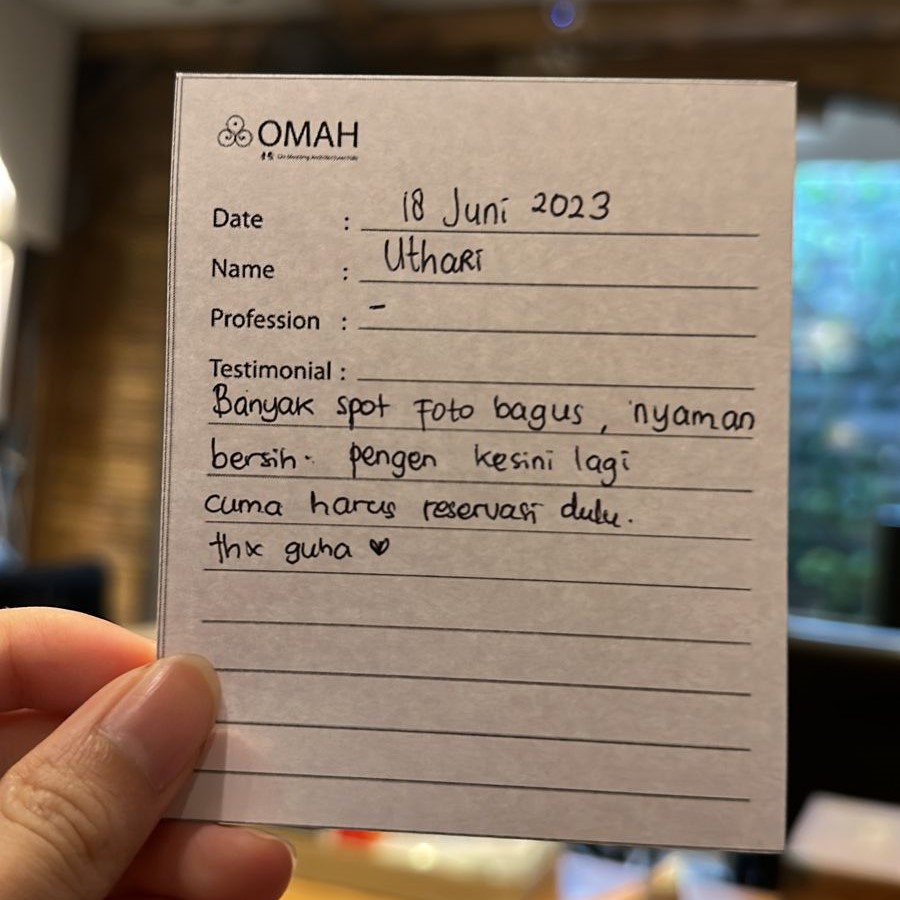 OMAH
Date : 18 Juni 2023
Name : Uthari
Profession : -
Testimonial :
Banyak spot foto bagus, nyaman
bersih. pengen kesini lagi
cuma harus reservasi dulu.
thx guha ♥